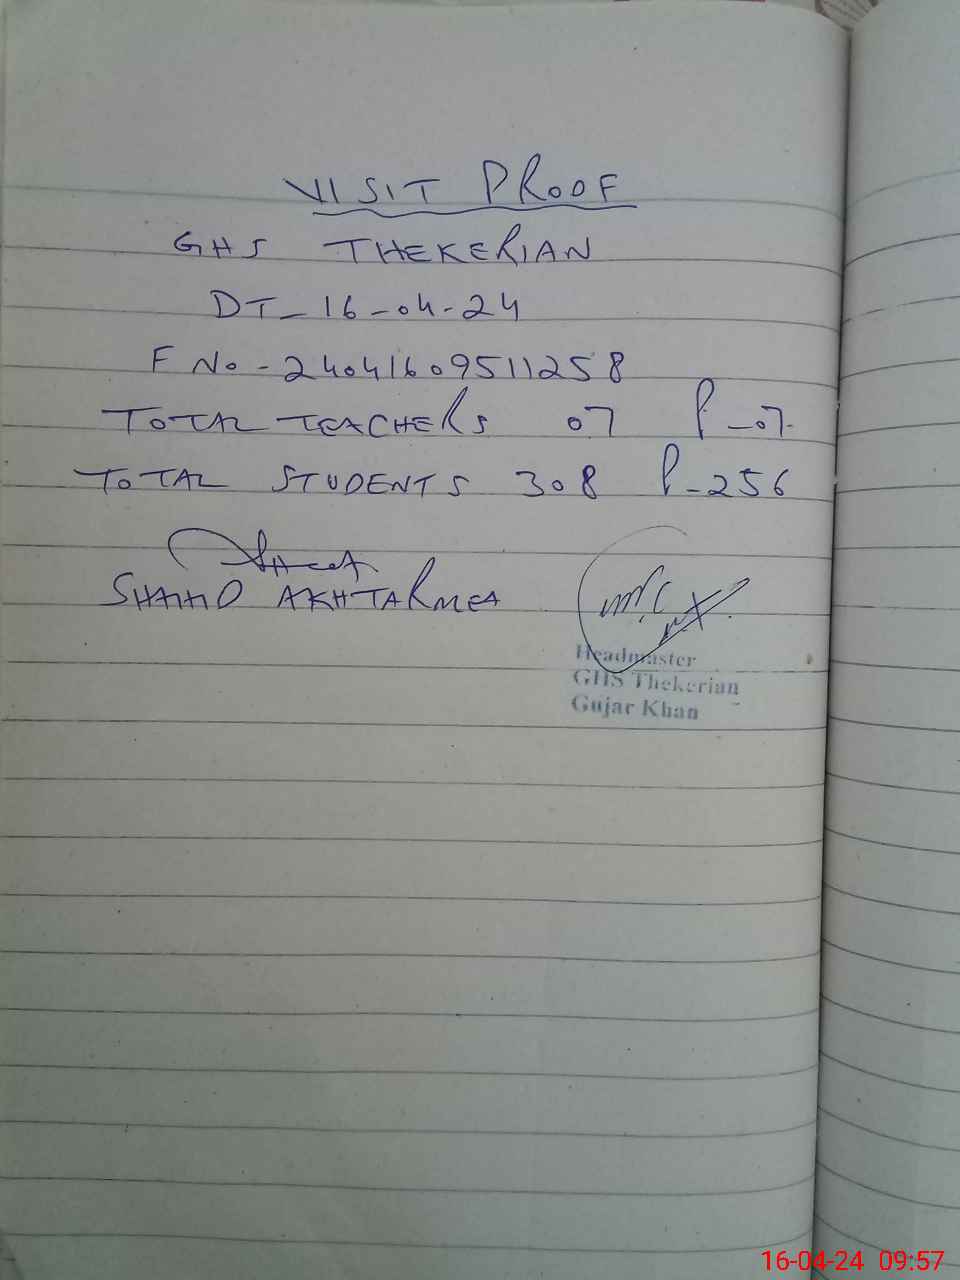 VISIT PROOF
GHS THEKERIAN
DT - 16-04-24
F No - 24041609511258
TOTAL TEACHERS 07 P-07
TOTAL STUDENTS 308 P-256
SHAHID AKHTAR MEA
Headmaster
GHS Thekerian
Gujar Khan
16-04-24 09:57